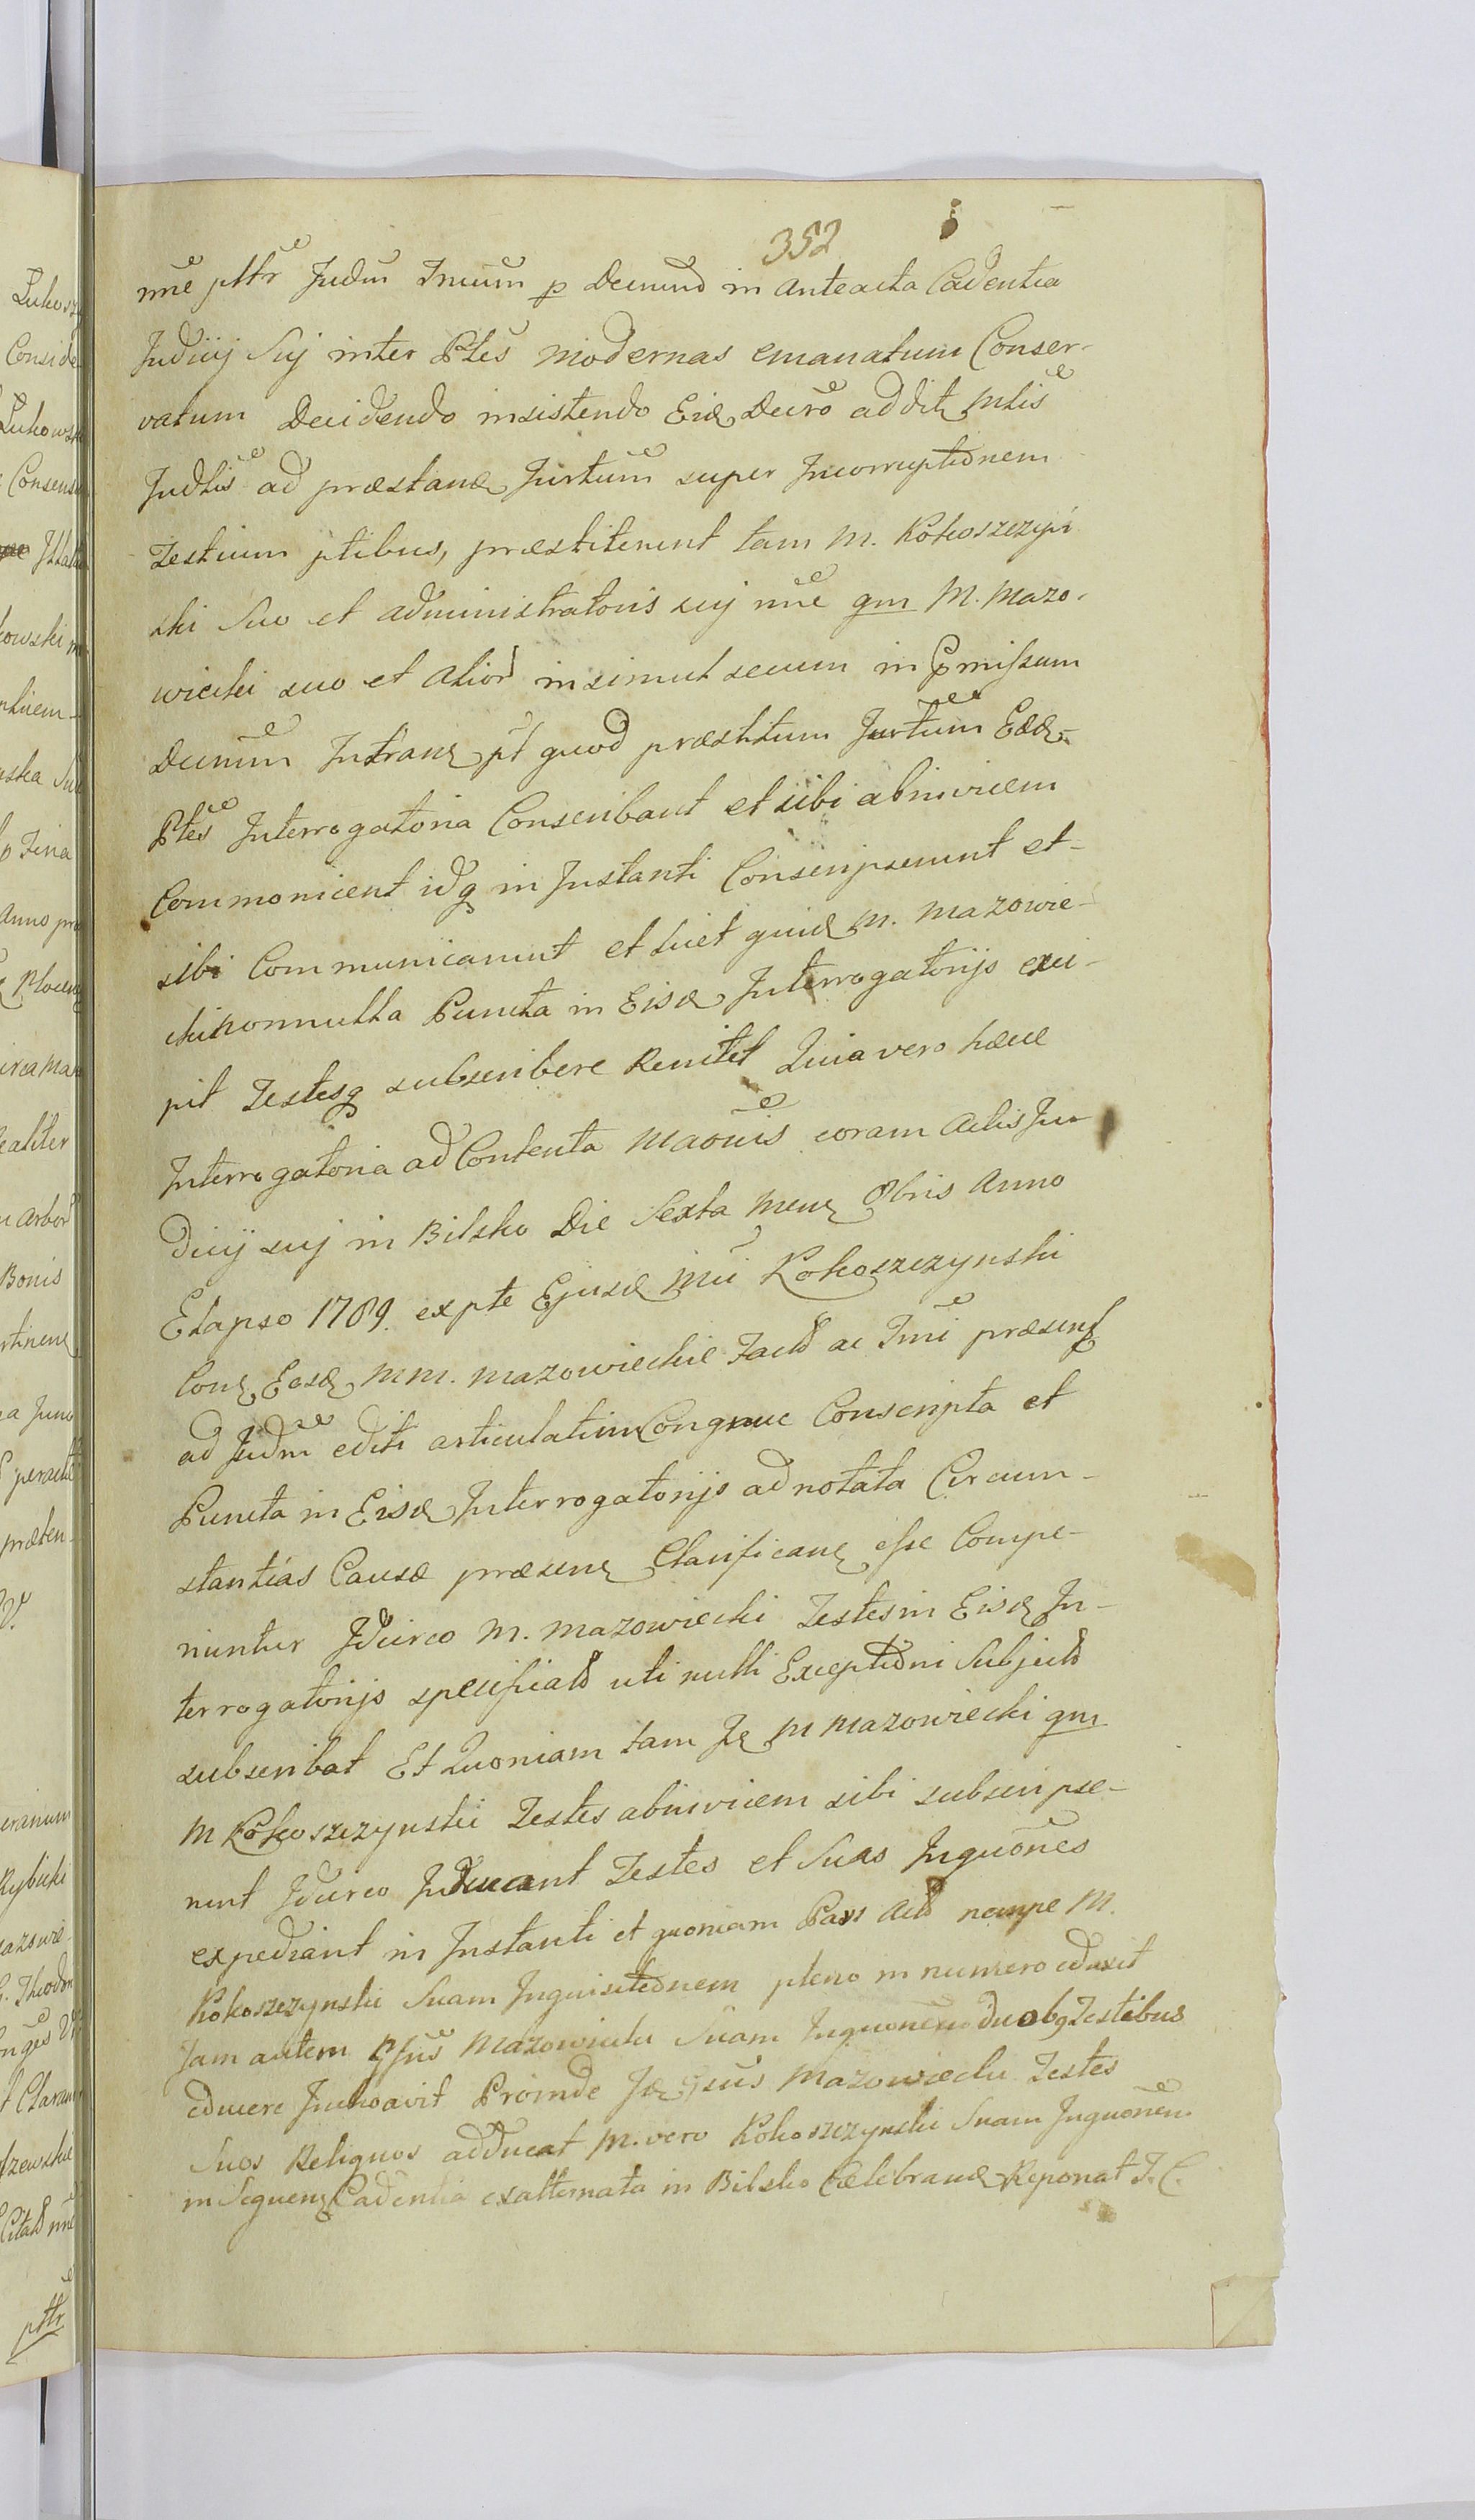 352
nne pttr Judm Inuum p Decnund in anteacta Cadentia
Judicij Suj inter Ptes modernas emanatum Conser-
vatum Decidendo insistendo Eid Decro addit Mtis
Judtis ad præstand Jurtum super Incorruptionem
Testium ptibus, præstiterunt tam M. Kokoszczyń
ski Suo et administratoris suj nne qm M. Mazo-
wiecki suo et alior insimul secum in Pmissum
Decnum Intrane pt quod præstitum Jurtum Eæd
Ptes Interrogatoria Conscribant et sibi abinvicem
Commonicent idq in Instanti Conscripserunt et
sibi Communicarunt et licet quid M. Mazowie-
cki nonnulla Puncta in Eisd Interrogatorijs exci-
pit Testesq subscribere Renitet Quia vero hæce
Interrogatoria ad Contenta Maonis coram Actis Ju-
dicij suj in Bilsko Die Sexta Mens 8bris Anno
Elapso 1789. ex pte Ejusd Mci Kokoszczynski
Con Eosd MM. Mazowieckie Fact ac Tmi præsent
ad Judm editi articulatim Congrue Conscripta et
Puncta in Eisd Interrogatorijs adnotata Circum-
stantias Causæ præsens Clarificane esse Compe-
riuntur Idcirco M. Mazowiecki Testes in Eisd In-
terrogatorijs specificat uti nulli Exceptioni Subject
subscribat Et Quoniam tam Id M Mazowiecki qm
M Kokoszczynski Testes abinvicem sibi subscripse-
runt Idcirco Inducant Testes et Suas Inquones
expediant in Instanti et quoniam Pars Act nempe M.
Kokoszczynski Suam Inquisitionem pleno in numero eduxit
Jam autem Mazowiecki Suam Inquonem duobq Testibus
educere Inchoavit Proinde Id Mazowiecki Testes
Suos Reliquos adducat M. vero Kokoszczynski Suam Inquonem
in Sequen Cadentia exalternata in Bilsko Celebrand Reponat J. C.